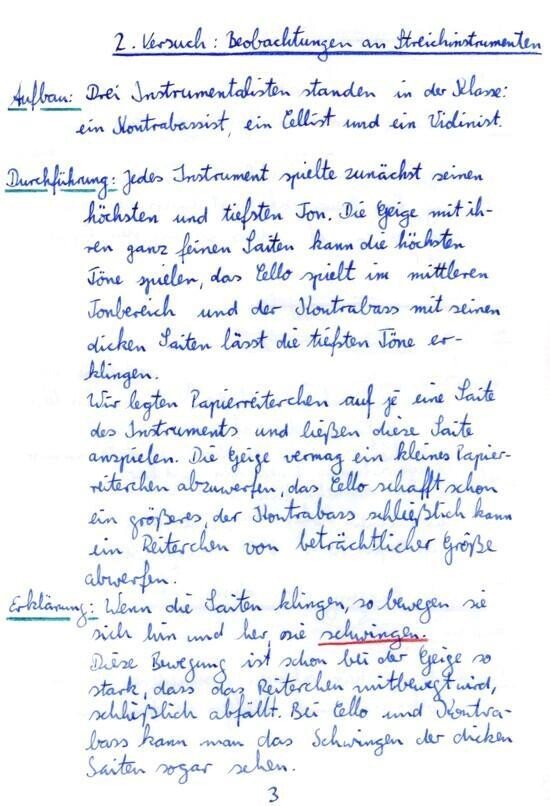 2. Versuch: Beobachtungen an Streichinstrumenten
Aufbau: Drei Instrumentalisten standen in der Klasse:
ein Kontrabassist, ein Cellist und ein Violinist.
Durchführung: Jedes Instrument spielte zunächst seinen
höchsten und tiefsten Ton. Die Geige mit ih-
ren ganz feinen Saiten kann die höchsten
Töne spielen, das Cello spielt im mittleren
Tonbereich und der Kontrabass mit seinen
dicken Saiten lässt die tiefsten Töne er-
klingen.
Wir legten Papierreiterchen auf je eine Saite
des Instruments und ließen diese Saite
anspielen. Die Geige vermag ein kleines Papier-
reiterchen abzuwerfen, das Cello schafft schon
ein größeres, der Kontrabass schließlich kann
ein Reiterchen von beträchtlicher Größe
abwerfen.
Erklärung: Wenn die Saiten klingen, so bewegen sie
sich hin und her, sie schwingen.
Diese Bewegung ist schon bei der Geige so
stark, dass das Reiterchen mitbewegt wird,
schließlich abfällt. Bei Cello und Kontra-
bass kann man das Schwingen der dicken
Saiten sogar sehen.
3